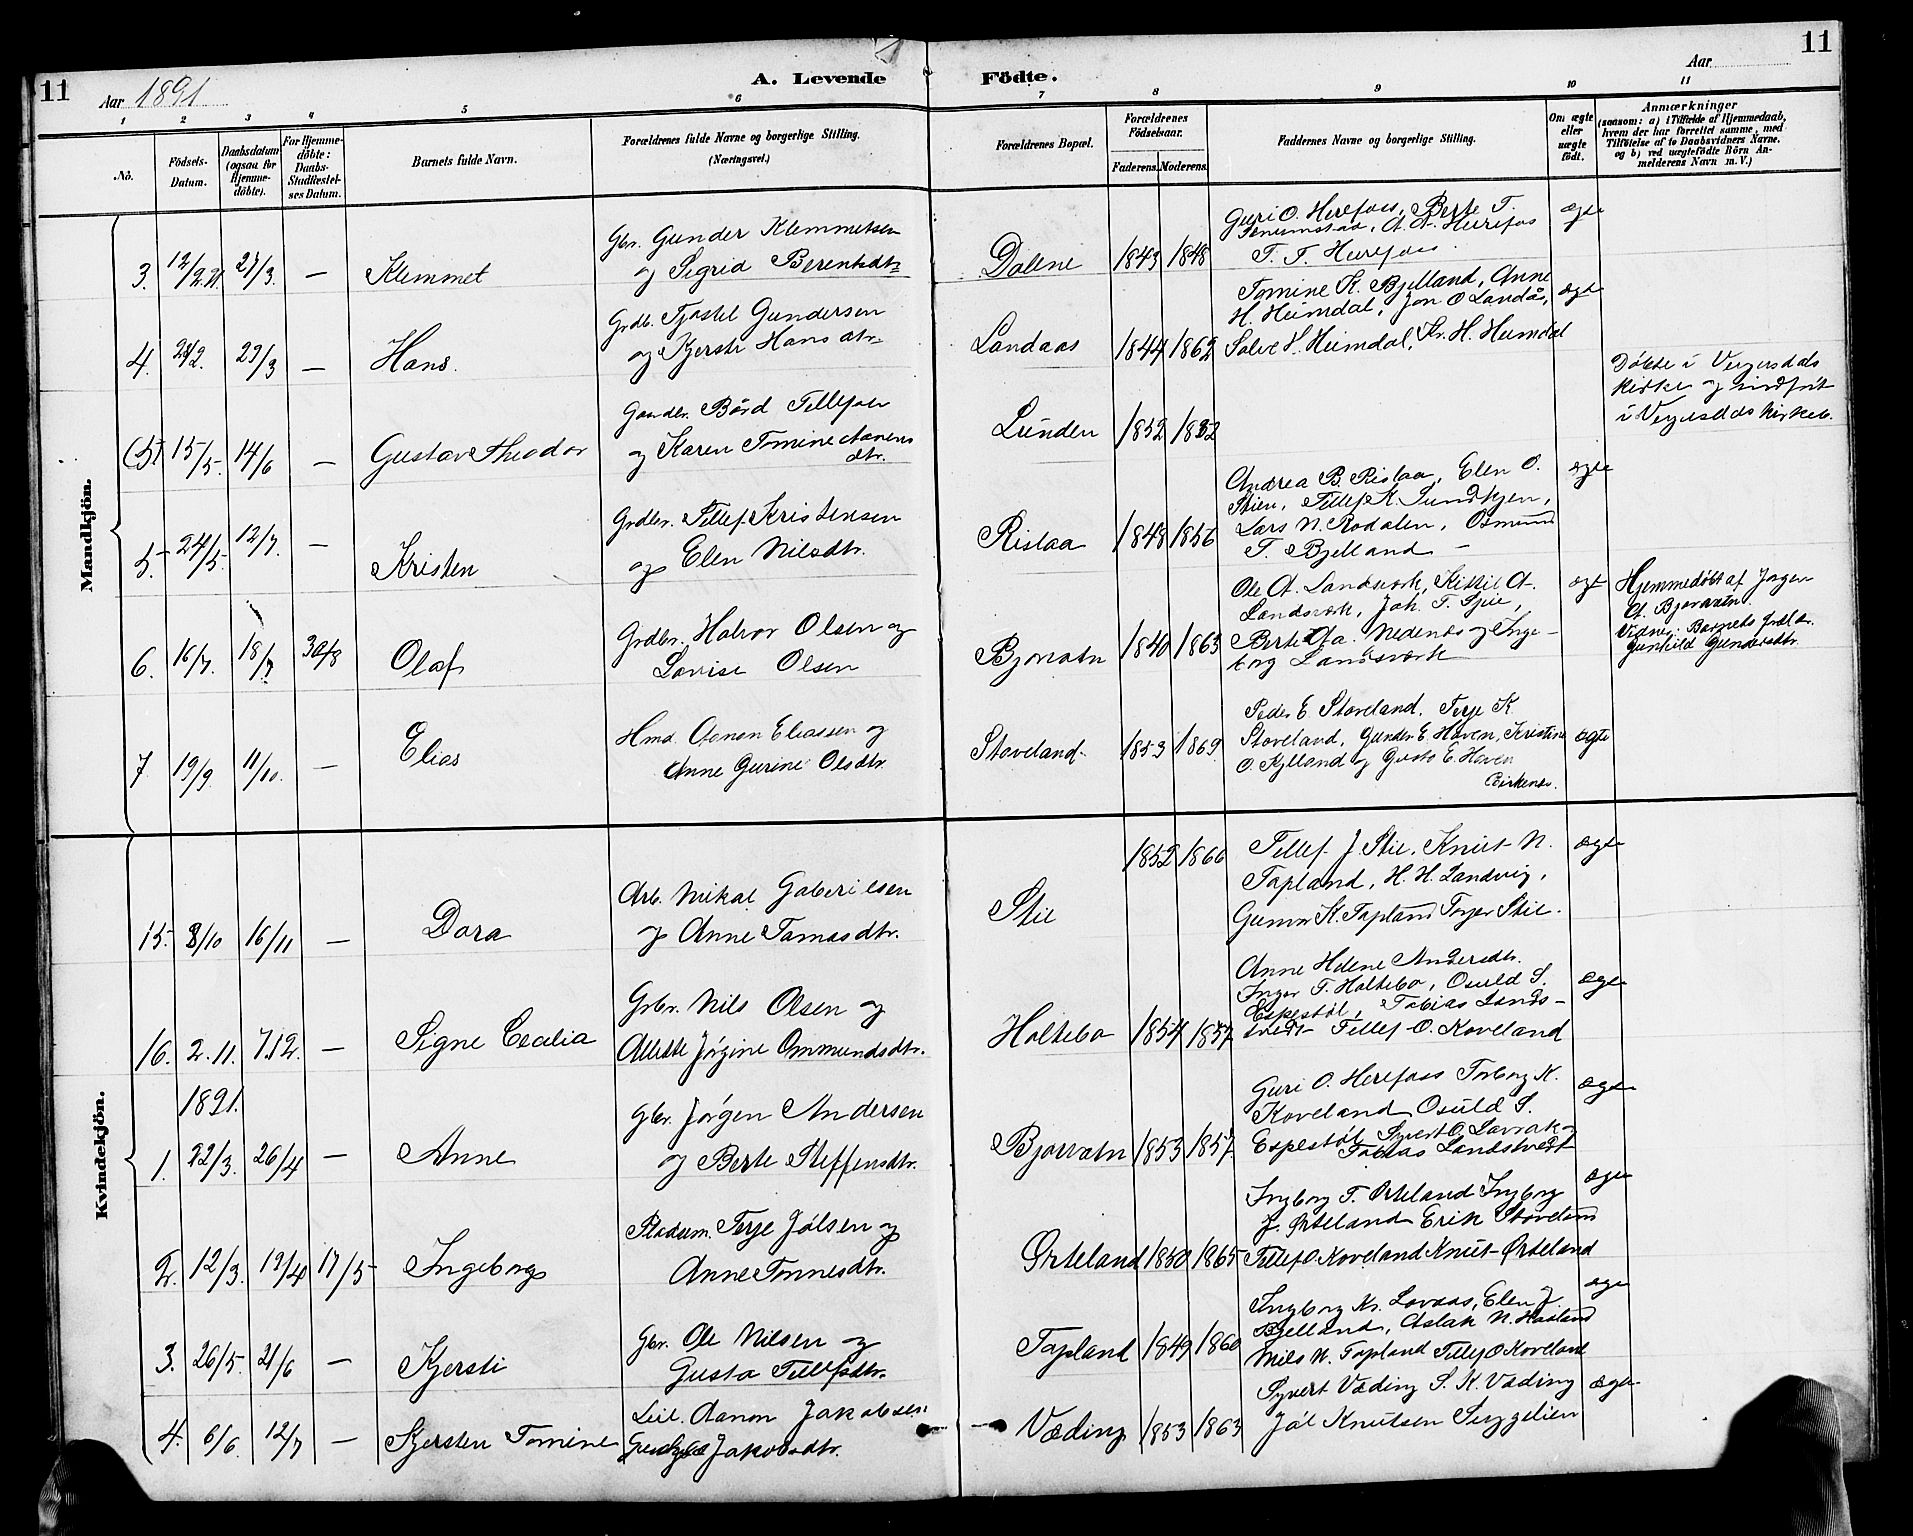 11
Aar 1891
A. Levende Födte.
Aar
11
1 2 3 4 5 6 7 8 9 10 11
No.
Födsels-
Datum.
Daabsdatum
(ogsaa for
Hjemme-
döbte).
For Hjemme-
döbte:
Daabs-
Stadfæstel-
ses Datum.
Barnets fulde Navn.
Forældrenes fulde Navne og borgerlige Stilling.
(Næringsvei.)
Forældrenes Bopæl.
Forældrenes
Födselsaar.
Faderens. Moderens.
Faddernes Navne og borgerlige Stilling.
Om ægte
eller
uægte
födt.
Anmærkninger
(saasom: a) i Tilfælde af Hjemmedaab,
hvem der har forrettet samme, med
Tilföielse af to Daabsvidners Navne,
og b) ved uægtefödte Börn An-
melderens Navn m. V.)
Mandkjön.
3. 27/3. — Klemmet
Gbr. Gunder Klemmetsen
og Sigrid Berentsdtr
Dalene 1843 1848
Guri O. Herefoss, Berte T.
T. T. Herefoss
ægte
4. 29/3 — Hans.
Gundersen
og Kjersti Hansdtr
Landaas 1844 1862
Tomine K. Bjelland, Anne
H. Heimdal, Jon O Landås,
Salve H. Heimdal, Kr. H. Heimdal
ægte
(5) 15/5. 14/6 — Gustav Theodor
Bård Tellefsen
og Karen Tomine Aanens
dtr.
Lunden 1852
Döbte i Vegusdals
Kirke og indført
i Vegusdals Kirkeb.
5. 24/5. 12/7. — Kristen
Grdbr. Tellef Kristensen
og Elen Nilsdtr.
Rislaa 1848 1856
Andrea B. Rislaa, Elen O.
Stien, Tellef K.
Lars N. Rodalen, Osmund
T. Bjelland —
ægte
6. 16/7. 18/7 30/8 Olaf
Grdbr. Halvor Olsen og
Lovise Olsen
Bjorvatn 1840 1863
Ole A. Landsverk, Kittil A.
Landsverk, Joh. T.
Nedenes og Inge-
borg Landsværk
ægte
Hjemmedöbt af Jörgen
A. Bjorvatn.
Vidner: Barnets
Gunhild Gundersdtr.
7 19/9. 11/10. — Elias
Hmd. Aanon Eliassen og
Anne Gurine Olsdtr.
Stoveland. 1853 1869
Peder E Stoveland. Terje K
Stoveland, Gunder E Haven, Kristine
O. Kylland og Gusta E. Haven
Birkenes.
ægte
Kvindekjön.
15. 8/10 16/11 — Dora
Arb. Mikal Gabrielsen
og Anne Tomasdtr.
Stie 1852 1866
Tellef J Stie, Knut N.
Tapland, H. H. Landvig,
Gunvor K. Tapland Torjer Stie.
ægte
16. 2.11. 7.12. — Signe Cecilia
Grbr. Nils Olsen og
Allette Jörgine Ommundsdtr.
Holtebo 1854 1857
Anne Helene Andersdtr.
Inger T. Holtebo, Osuld S.
Espestøl, Tobias Lands-
tvedt Tellef O. Koveland
ægte
1891.
1. 22/3. 26/4 — Anne
Gbr. Jörgen Andersen
og Berte Steffensdtr.
Bjorvatn 1853 1857
Guri O. Herefoss Torborg K.
Koveland Osuld S.
Espestøl Syvert O. Lavrak
Tobias Landstvedt
ægte
2. 12/3. 19/4 17/5 Ingeborg
Pladsm. Terje Jölsen og
Anne Tonnesdtr.
Ørteland 1850 1865
Ingborg T. Ørteland Ingborg
J. Ørteland Erik Stoveland
Tellef O. Koveland Knut Ørteland
ægte
3. 26/5. 21/6 — Kjersti
Gbr. Ole Nilsen og
Gusta Tellefsdtr.
Tapland 1849 1860
Ingborg Kr. Lovaas, Elen J
Bjelland, Aslak N. Haaland
Nils N. Tapland Tellef O Koveland
ægte
4. 6/6. 12/7 — Kjersten Tomine
Leil. Aanon Jakobsen
Jakobsdtr.
Væding 1853 1863
Syvert Væding S. K. Væding
Jöl Knutsen
ægte